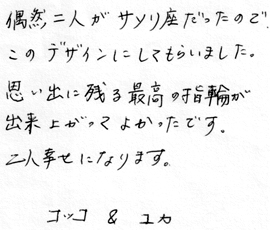 偶然二人がサソリ座だったので
このデザインにしてもらいました。
思い出に残る最高の指輪が
出来上がってよかったです。
二人幸せになります。
コッコ & ユカ